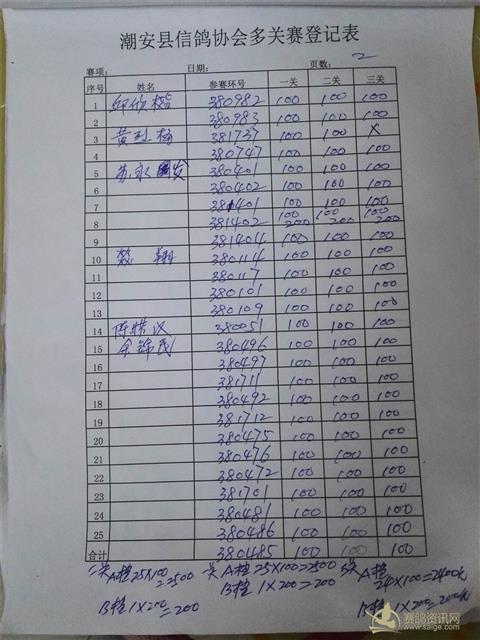 潮安县信鸽协会多关赛登记表
赛项: 日期: 页数: 2
序号 姓名 参赛环号 一关 二关 三关
1 380982 100 100 100
2 380983 100 100 100
3 黄 381737 100 100 X
4 380747 100 100 100
5 苏永 380401 100 100 100
6 380402 100 100 100
7 381401 100 100 100
8 381402 100 200 100 200 100 200
9 381404 100 100 100
10 翔 380114 100 100 100
11 380117 100 100 100
12 380101 100 100 100
13 380109 100 100 100
14 陈惜汉 380051 100 100 100
15 余锦茂 380496 100 100 100
16 380497 100 100 100
17 381711 100 100 100
18 380492 100 100 100
19 381712 100 100 100
20 380475 100 100 100
21 380476 100 100 100
22 380472 100 100 100
23 381701 100 100 100
24 380481 100 100 100
25 380486 100 100 100
合计 380485 100 100 100
A档 25X100=2500 关 A档 25X100=2500 关 A档 24X100=2400元
B档 1X200=200 B档 1X200=200 B档 1X200=200元
赛鸽资讯网
www.saige.com